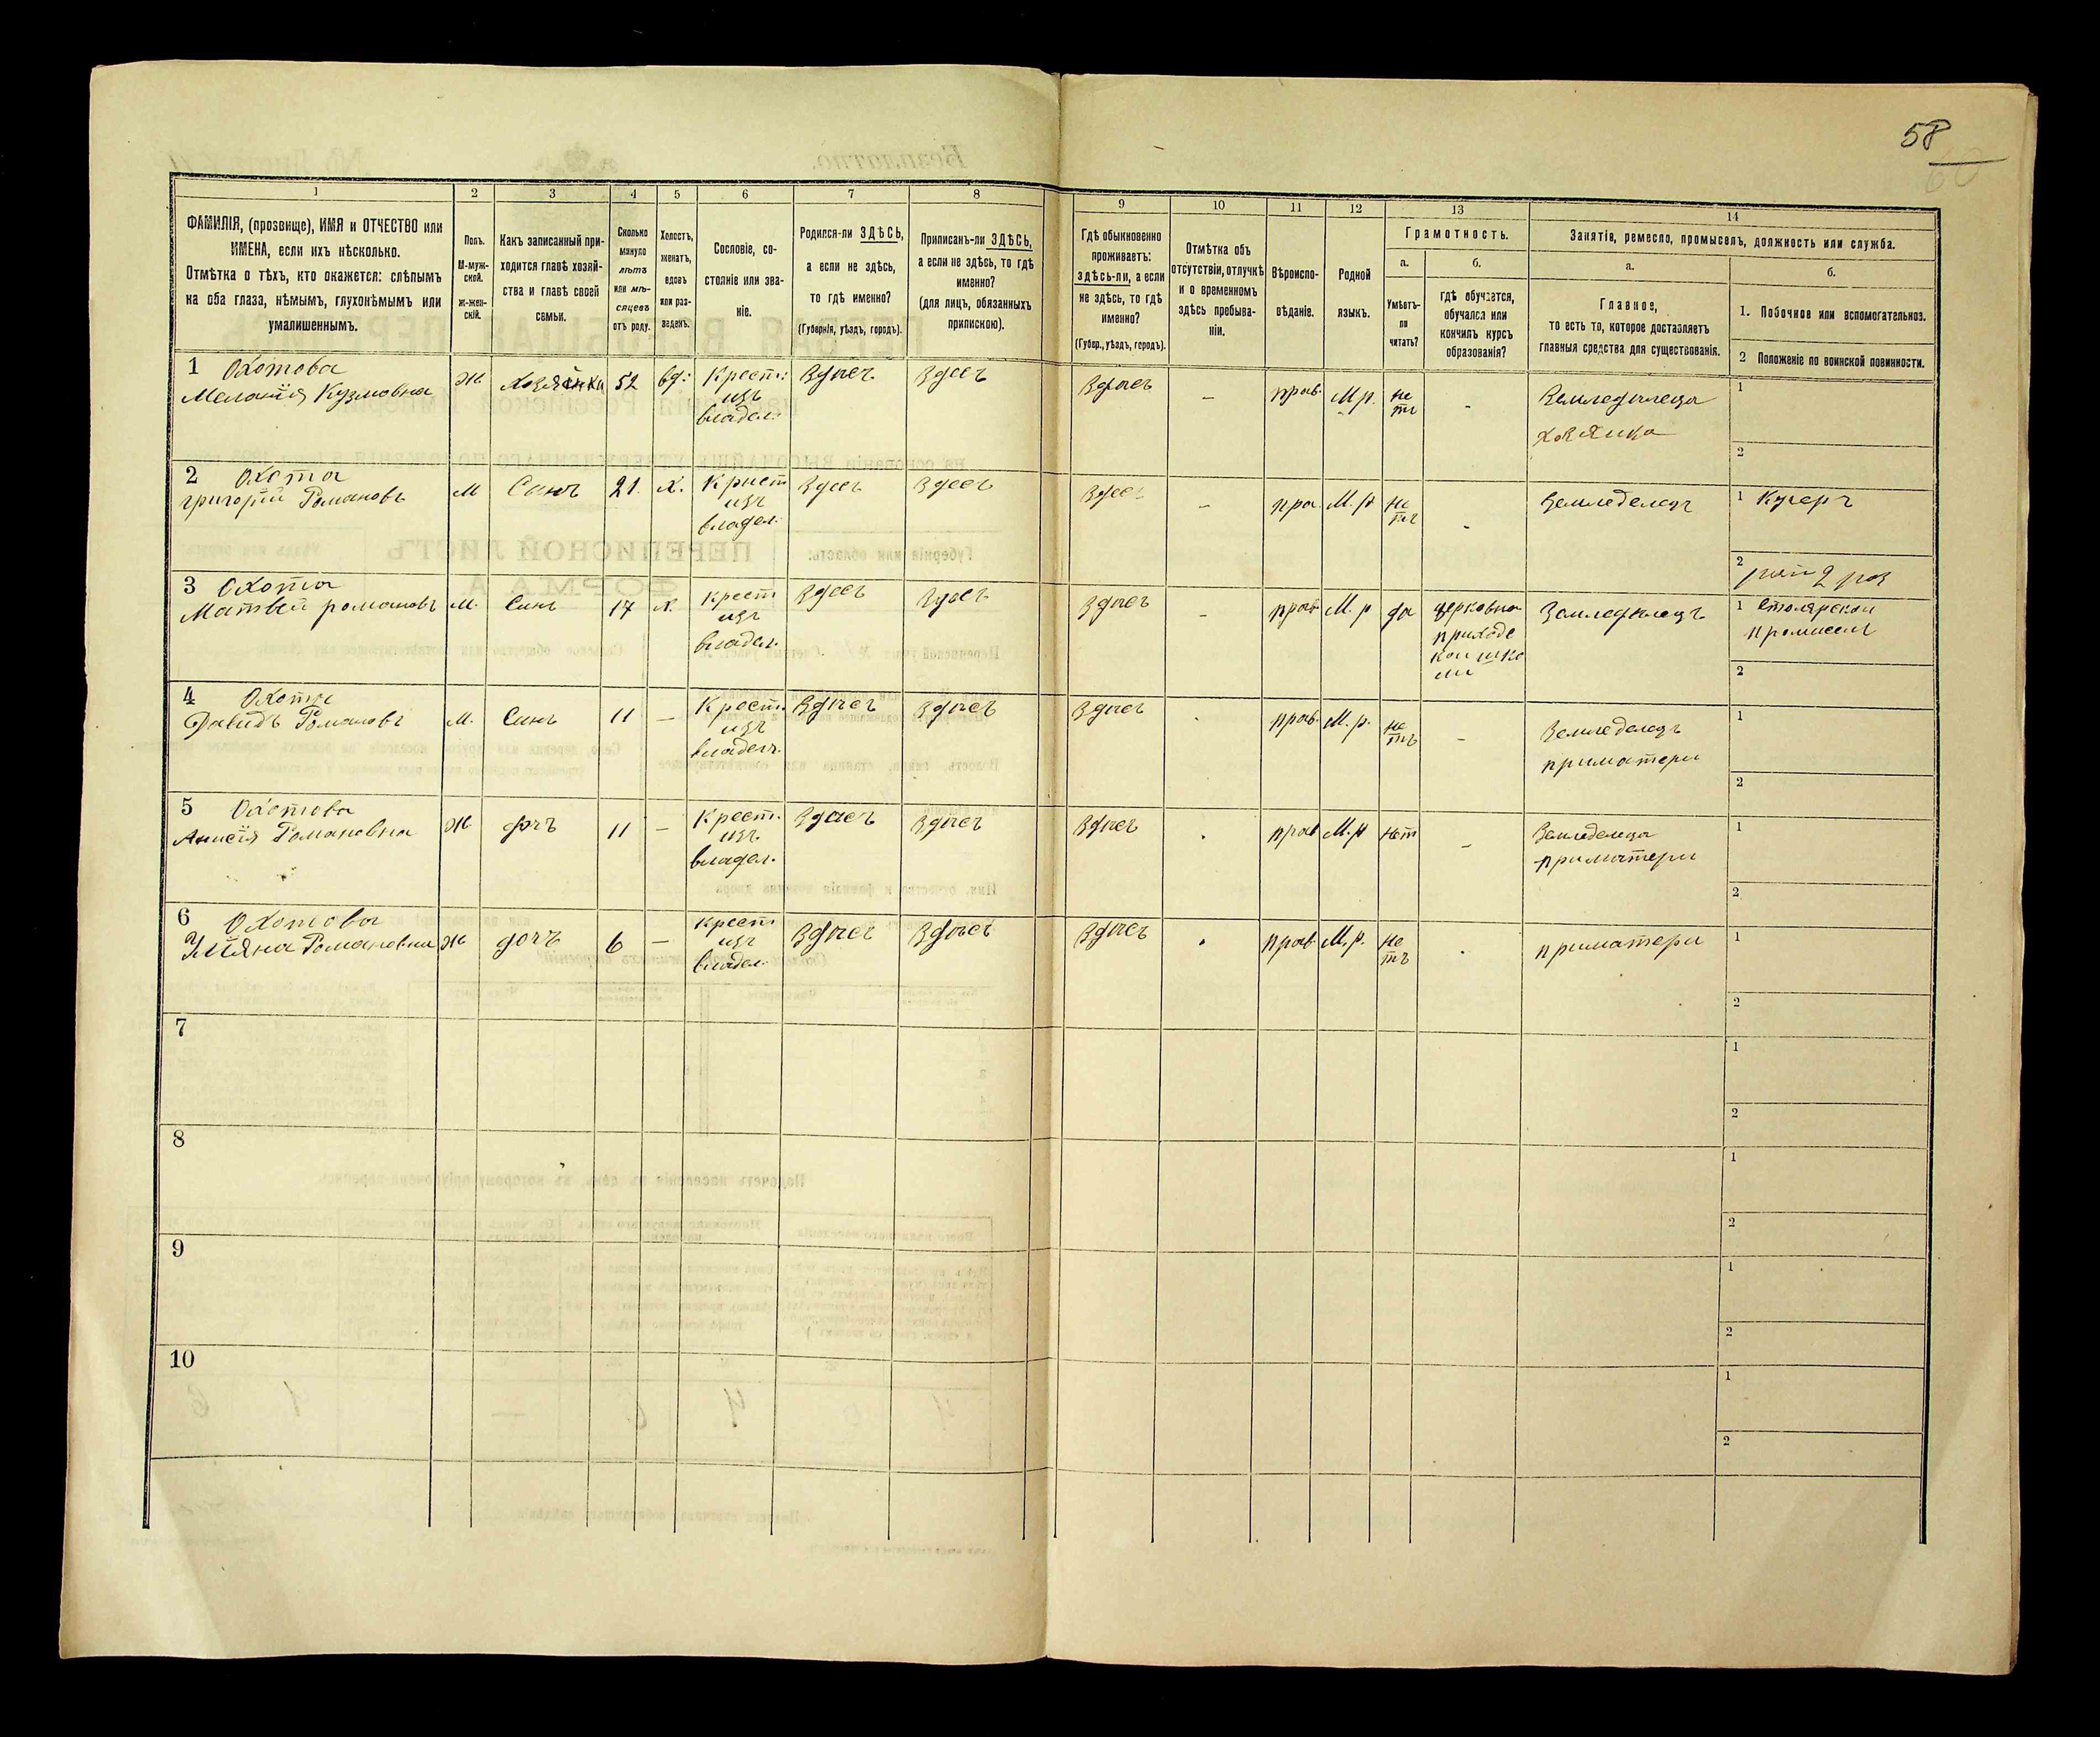 58
1
2
3
4
5
6
7
8
9
10
11
12
13
14
ФАМИЛІЯ, (прозвище), ИМЯ и ОТЧЕСТВО или
ИМЕНА, если ихъ нѣсколько.
Отмѣтка о тѣхъ, кто окажется: слѣпымъ
на оба глаза, нѣмымъ, глухонѣмымъ или
умалишеннымъ.
Полъ.
М-муж-
ской.
ж-жен-
скій.
Какъ записанный при-
ходится главѣ хозяй-
ства и главѣ своей
семьи.
Сколько
минуло
лѣтъ
или мѣ-
сяцевъ
отъ роду.
Холостъ,
женатъ,
вдовъ
или раз-
веденъ.
Сословіе, со-
стояніе или зва-
ніе.
Родился-ли ЗДѢСЬ,
а если не здѣсь,
то гдѣ именно?
(Губернія, уѣздъ, городъ).
Приписанъ-ли ЗДѢСЬ,
а если не здѣсь, то гдѣ
именно?
(для лицъ, обязанныхъ
припискою).
Гдѣ обыкновенно
проживаетъ:
здѣсь-ли, а если
не здѣсь, то гдѣ
именно?
(Губер., уѣздъ, городъ).
Отмѣтка объ
отсутствіи, отлучкѣ
и о временномъ
здѣсь пребыва-
ніи.
Вѣроиспо-
вѣданіе.
Родной
языкъ.
Грамотность.
а.
Умѣетъ-
ли
читать?
б.
гдѣ обучается,
обучался или
кончилъ курсъ
образованія?
Занятіе, ремесло, промыселъ, должность или служба.
а.
Главное,
то есть то, которое доставляетъ
главныя средства для существованія.
б.
1. Побочное или вспомогательное.
2 Положеніе по воинской повинности.
1 Охотова
Меланія Кузмовна
Ж
Хозяйка
52
вд:
Крест:
изъ
владел:
Здѣсъ
Здесъ
Здѣсъ
–
прав.
М р.
не
тъ
-
Земледѣлеца
хозяика
1
2
2 Охота
григорій Романовъ
М
Сынъ
21.
Х.
Крист
изъ
владел.
Здесъ
Здесъ
Здесъ
–
пра.
М. р
не
тъ
-
Земледелецъ
1 Кучеръ
2
3 Охота
Матвей романовъ
М.
Синъ
17
х.
Крест
изъ
владел.
Здесъ
Здѣсъ
Здѣсъ
–
прав
М. р
да
церковна
приходс
кои шко
ли
Земледѣлецъ
1 столярскои
промисел
2
4 Охота
Давидъ Романовъ
М.
Синъ
11
–
Крест.
изъ
владел.
Здѣсъ
Здѣсъ
Здѣсъ
прав.
М. р.
не
тъ
–
Земледелецъ
приматери
1
2
5 Охотова
Анисія Романовна
Ж
дочъ
11
–
Крест.
изъ
владел.
Здѣсъ
Здѣсъ
Здѣсъ
прав
М. р
нет
–
Земледелеца
приматери
1
2
6 Охотова
Уліяна Романовна
Ж
дочъ
6
–
Крест
изъ
владел.
Здѣсъ
Здѣсъ
Здѣсъ
прав.
М. р.
не
тъ
приматери
1
2
7
1
2
8
1
2
9
1
2
10
1
2